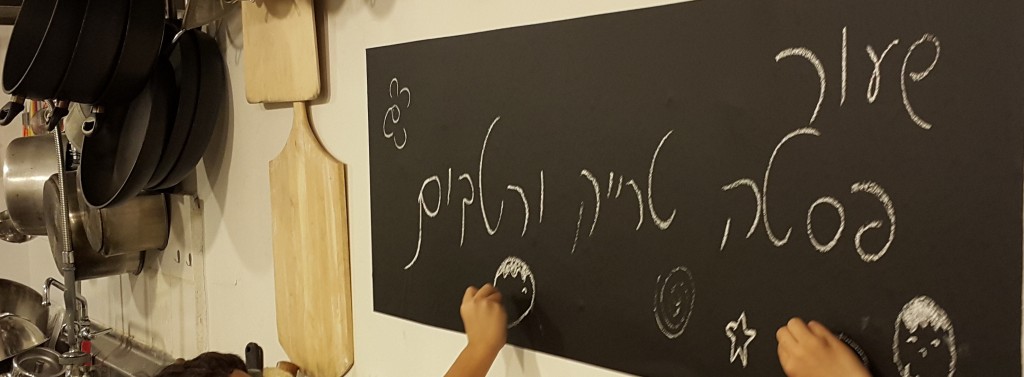 שעור
פסטה טרייה ורטבים